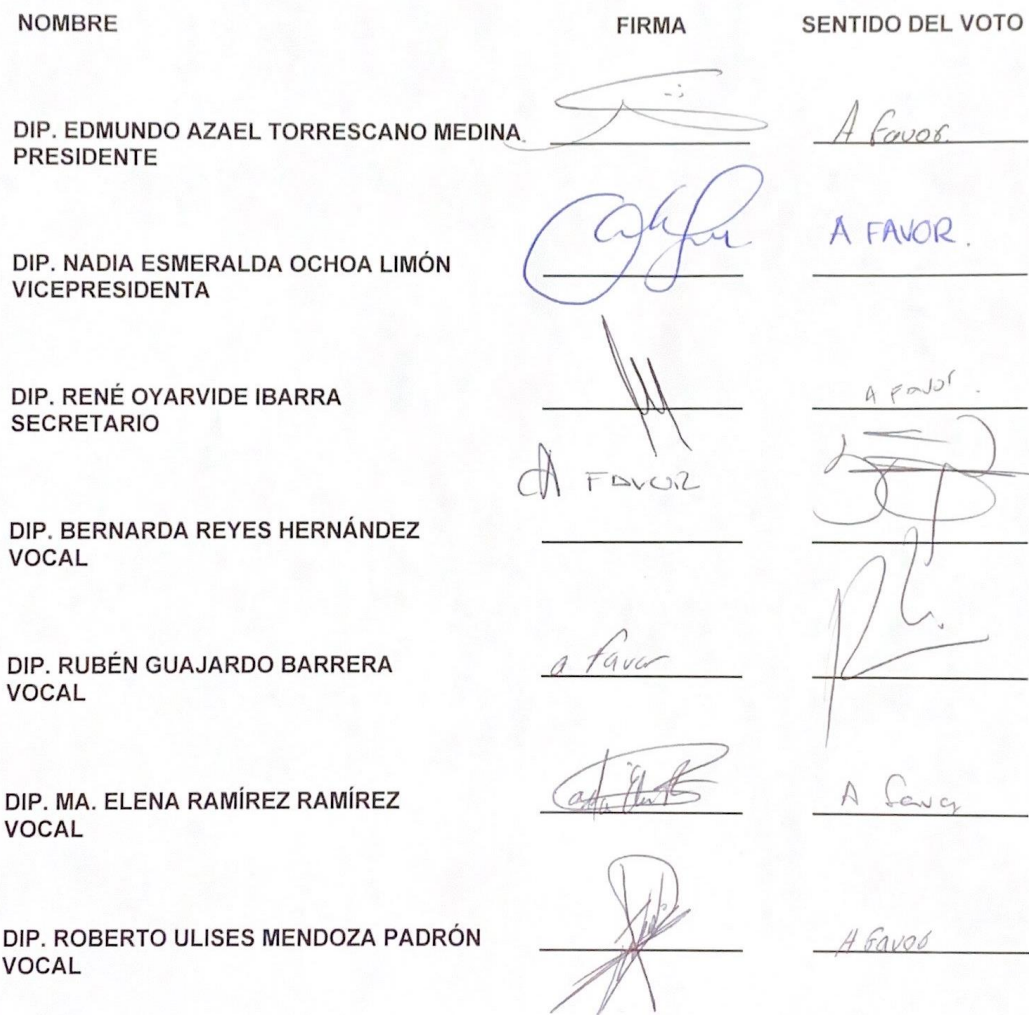 NOMBRE FIRMA SENTIDO DEL VOTO
DIP. EDMUNDO AZAEL TORRESCANO MEDINA A favor.
PRESIDENTE
A FAVOR.
DIP. NADIA ESMERALDA OCHOA LIMÓN
VICEPRESIDENTA
DIP. RENÉ OYARVIDE IBARRA A favor.
SECRETARIO
A FAVOR
DIP. BERNARDA REYES HERNÁNDEZ
VOCAL
DIP. RUBÉN GUAJARDO BARRERA a favor
VOCAL
DIP. MA. ELENA RAMÍREZ RAMÍREZ A favor
VOCAL
DIP. ROBERTO ULISES MENDOZA PADRÓN A favor
VOCAL